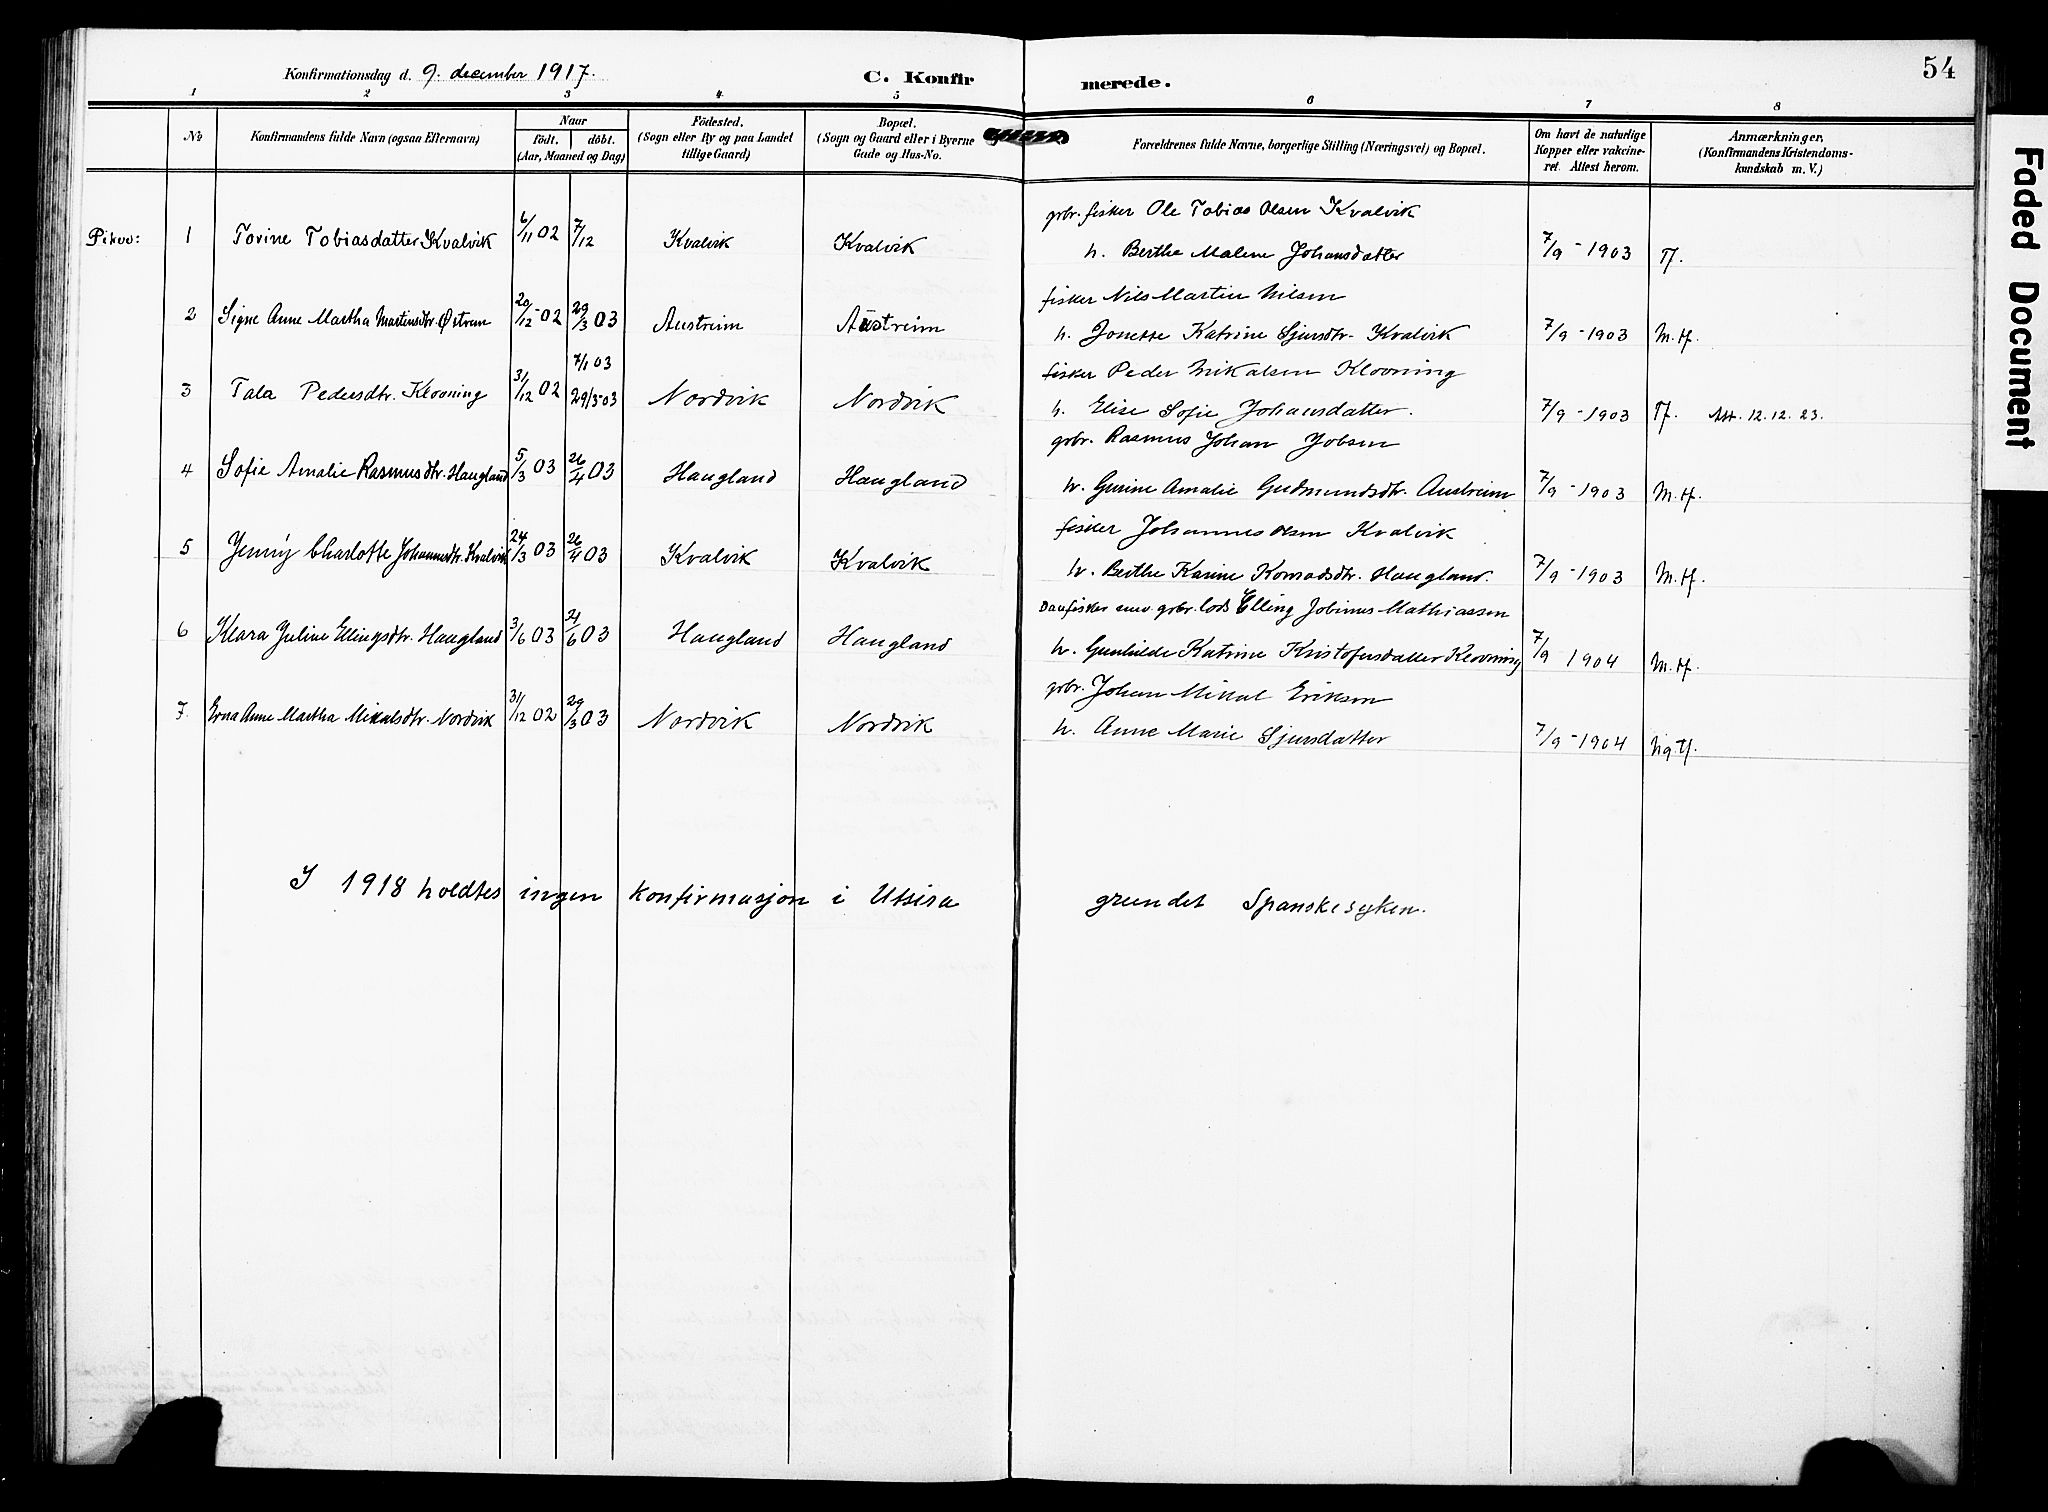 Konfirmationsdag d. 9. december 1917.
C. Konfirmerede.
54
1 2 3 4 5 6 7 8
No
Konfirmandens fulde Navn (ogsaa Efternavn)
Naar
født. døbt.
(Aar, Maaned og Dag)
Fødested.
(Sogn eller By og paa Landet
tillige Gaard)
Bopæl.
(Sogn og Gaard eller i Byerne
Gade og Hus-No.
Forældrenes fulde Navne, borgerlige Stilling (Næringsvei) og Bopæl.
Om havt de naturlige
Kopper eller vakcine-
ret. Attest herom.
Anmærkninger,
(Konfirmandens Kristendoms-
kundskab m. V.)
grbr. fisker Ole Tobias Olsen Kvalvik
Piker: 1 Torine Tobiasdatter Kvalvik 6/11 02 7/12 Kvalvik Kvalvik h. Berthe Malene Johansdatter 7/9 - 1903 Tf.
fisker Nils Martin Nilsen
2 Signe Anne Martha Martinsdtr. Østrem 20/12 - 02 29/3 03 Austreim Austreim h. Jonette Katrine Sjursdtr. Kvalvik 7/9 - 1903 M.tf.
7/1 03
fisker Peder Mikalsen Klovning
3 Tala Pedersdtr. Klovning 31/12 02 29/5 03 Nordvik Nordvik h. Elise Sofie Johansdatter. 7/9 - 1903 Tf. Att. 12.12.23.
grbr. Rasmus Johan Jobsen
4 Sofie Amalie Rasmusdtr. Haugland 5/3 03 26/4 03 Haugland Haugland h. Gurine Amalie Gudmundsdtr. Austreim 7/9 - 1903 M.tf.
fisker Johannes Olsen Kvalvik
5 Jenny Charlotte Johannesdtr. Kvalvik 24/3 03 26/4 03 Kvalvik Kvalvik h. Berthe Karine Konradsdtr. Haugland. 7/9 - 1903 M.tf.
grbr. lods Elling Jobinus Mathiassen
6 Klara Juline Ellingsdtr. Haugland 3/6 03 21/6 03 Haugland Haugland h. Gunhilde Katrine Kristofersdatter Klovning 7/9 1904 M.tf.
grbr. Johan Mikal Eriksen
7. Erna Anne Martha Mikalsdtr. Nordvik 31/12 02 29/3 03 Nordvik Nordvik h. Anne Marie Sjursdatter 7/9 - 1904 Ng.tf.
I 1918 holdtes ingen konfirmasjon i Utsira grundet Spanskesyken.
Faded Document